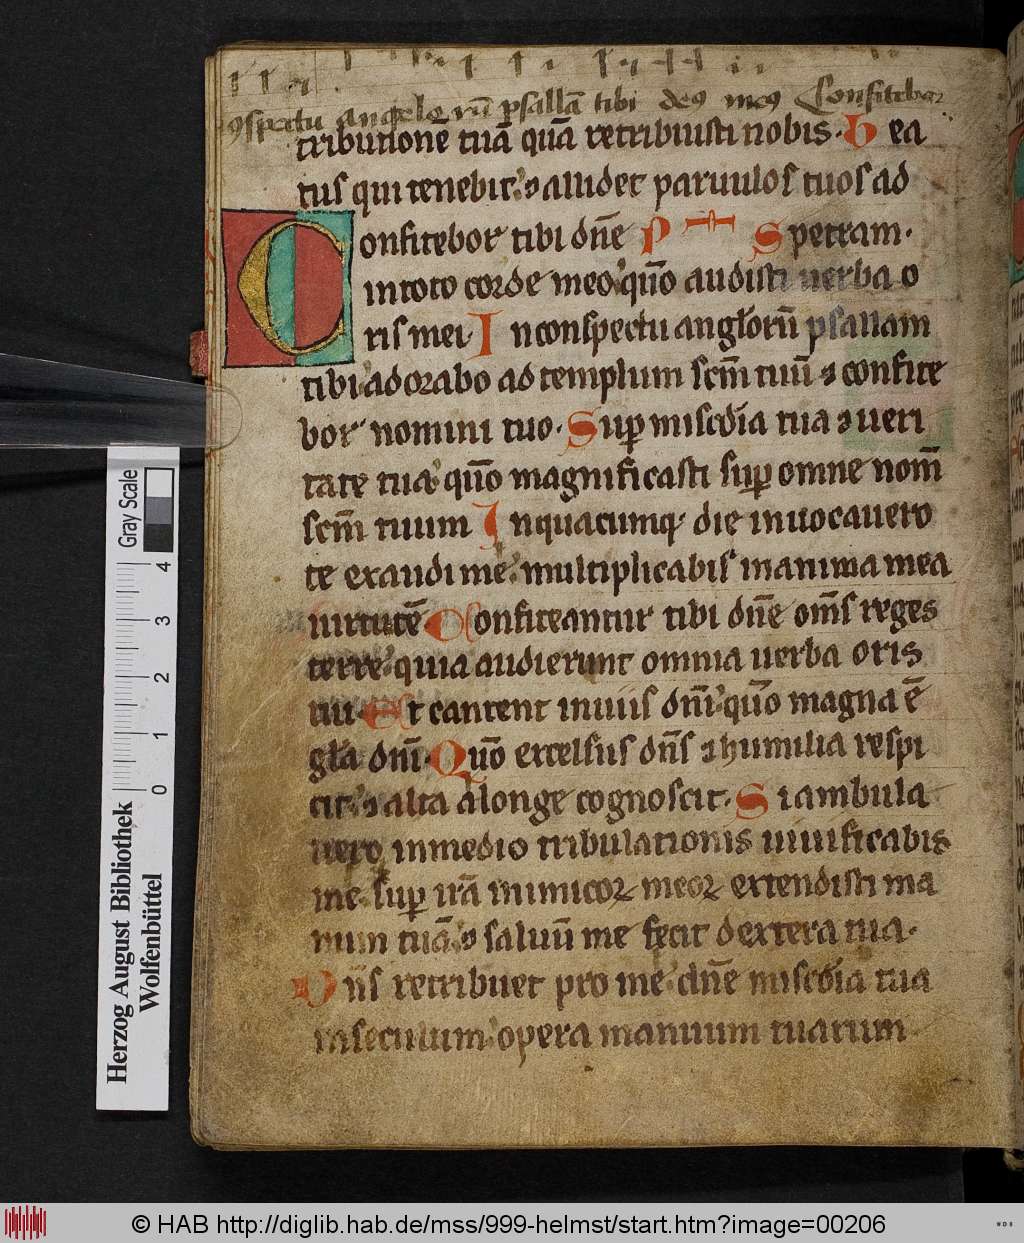 ꝯspectu angelorū psallā tibi deꝰ meꝰ Confitebor
tribution̄e tuā quā retribuisti nobis. Bea
tus qui tenebit: ⁊ allidet paruulos tuos ad
Confitebor tibi dn̄e petram.
in toto corde meo: qūo audisti uerba o
ris mei. In conspectu anglorū psallam
tibi: adorabo ad templum scm̄ tuū ⁊ confite
bor nomini tuo. Suꝑ miscd̄ia tua ⁊ ueri
tate tua: qūo magnificasti suꝑ omne nom̄
scm̄ tuum In quacumq; die inuocauero
te exaudi me: multiplicabis in anima mea
uirtutē Confiteantur tibi dn̄e om̄s reges
terre: quia audierunt omnia uerba oris
tui. Et cantent in uiis dn̄i: qūo magna ē
gl̄a dn̄i. Qūo excelsus dn̄s ⁊ humilia respi
cit: ⁊ alta a longe cognoscit. Si ambula
uero in medio tribulationis uiuificabis
me: suꝑ irā inimicoꝝ meoꝝ extendisti ma
num tuā: ⁊ saluū me fecit dextera tua.
Dn̄s retribuet pro me: dn̄e miscd̄ia tua
in seculum: opera manuum tuarum
Herzog August Bibliothek
Wolfenbüttel
Gray Scale
0 1 2 3 4
© HAB http://diglib.hab.de/mss/999-helmst/start.htm?image=00206